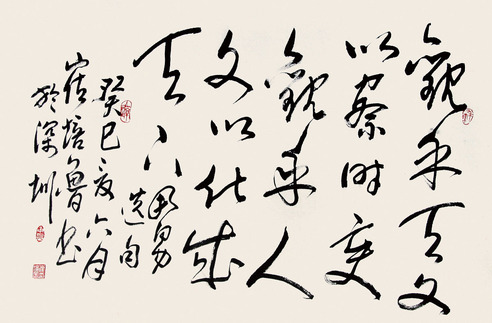 觀乎天文
以察时变
觀乎人
文以化成
天下 周易
选句
癸巳夏六月
崔培魯书
於深圳